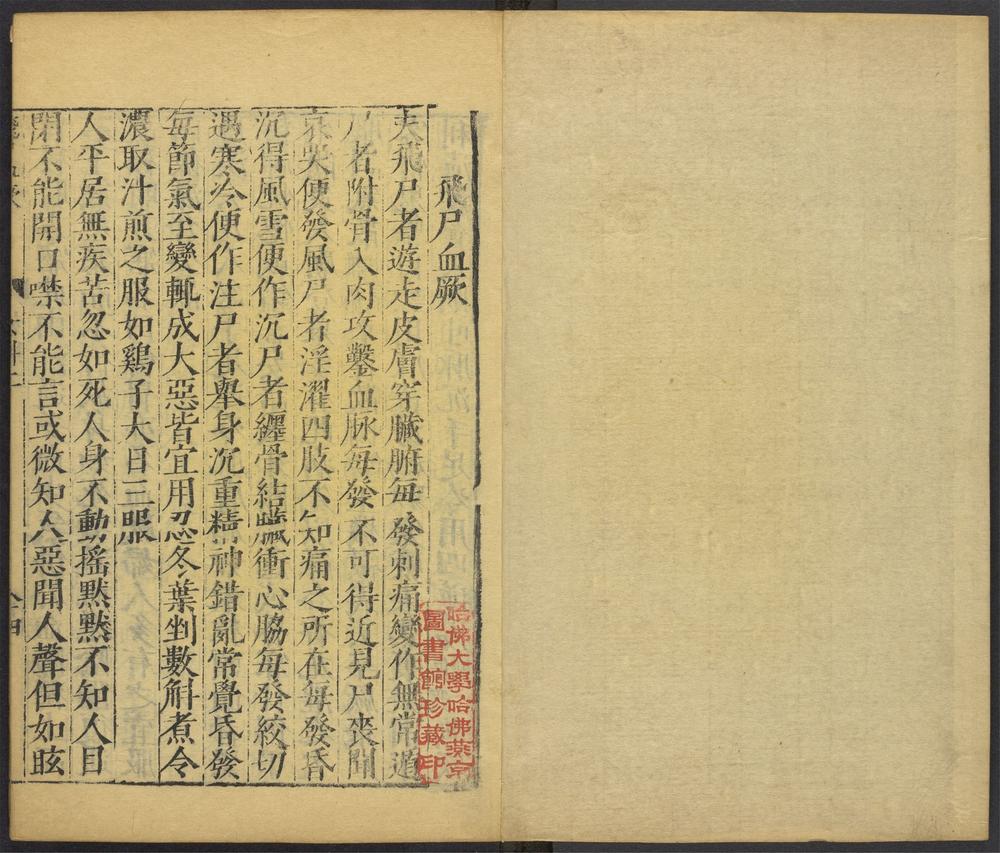 飛尸血厥
夫飛尸者遊走皮膚穿臟腑每發刺痛變作無常遁
尸者附骨入肉攻鑿血脉每發不可得近見尸喪聞
哀哭便發風尸者淫濯四肢不知痛之所在每發昏
沉得風雪便作沉尸者纏骨結臟衝心脇每發絞切
遇寒冷便作注尸者舉身沉重精神錯亂常覺昏發
每節氣至變輒成大惡皆宜用忍冬葉剉數斛煮令
濃取汁煎之服如鷄子大日三服
人平居無疾苦忽如死人身不動搖黙黙不知人目
閉不能開口噤不能言或微知人惡聞人聲但如眩
哈佛大學哈佛燕京
圖書館珍藏印